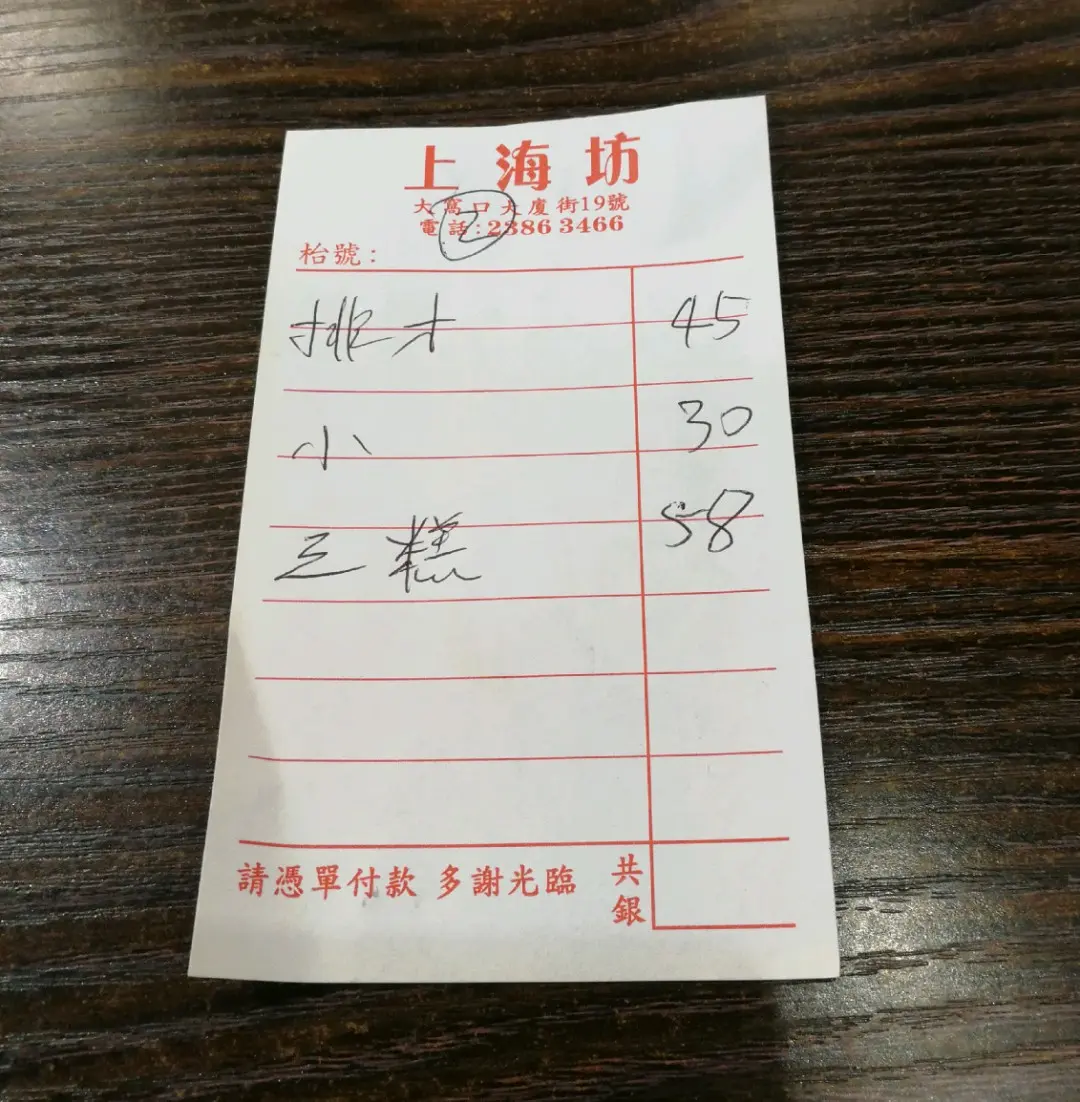 上海坊
大窩口大廈街19號
電話:23863466
枱號: ②
排才 45
小 30
三糕 58
請憑單付款 多謝光臨 共銀